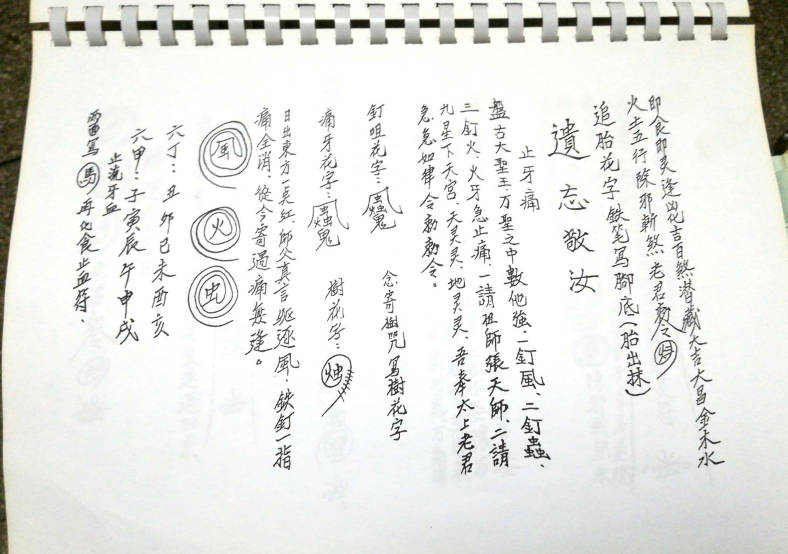 即食即灵逢凶化吉百煞潜藏大吉大昌金木水
火土五行除邪斬煞老君勅令
追胎花字鉄笔写腳底(胎出抹)
遺忘敬汝
止牙痛
盤古大聖王、万聖之中數他強、一釘風、二釘蟲、
三釘火、火牙急止痛、一請祖師張天師、二請
九星下天宮、天灵灵、地灵灵、吾奉太上老君
急急如律令勅勅令。
釘咀花字:
念寄樹咒写樹花字
痛牙花字:
樹花字:
日出東方一点紅、師父真言驱逐風、鉄釘一指
痛全消、從今寄過痛无逢。
風 火 虫
六丁:丑卯巳未酉亥
六甲:子寅辰午申戌
止流牙血
写馬再化食止符.